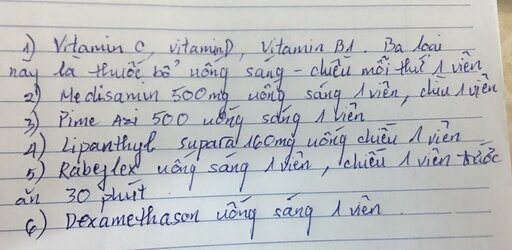 1) Vitamin C, vitamin D, Vitamin B1. Ba loại
này là thuốc bổ uống sáng - chiều mỗi thứ 1 viên
2) Medisamin 500mg uống sáng 1 viên, chiều 1 viên
3) Pime Azi 500 uống sáng 1 viên
4) Lipanthyl supara 160mg uống chiều 1 viên
5) Rabeflex uống sáng 1 viên, chiều 1 viên trước
ăn 30 phút
6) Dexamethason uống sáng 1 viên.